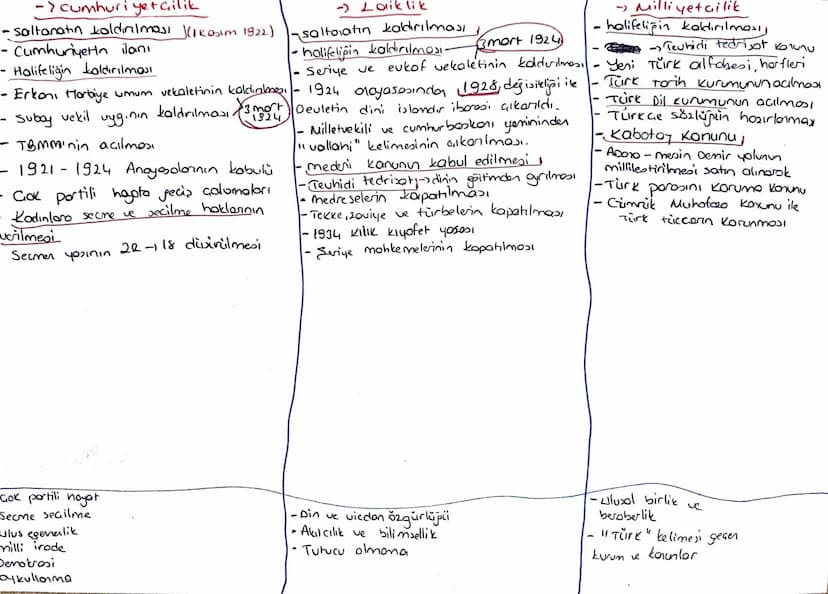 -> Cumhuriyetcilik
- saltanatın kaldırılması (1 Kasım 1922)
- Cumhuriyetin ilanı
- Halifeliğin kaldırılması
- Erkanı Harbiye umum vekaletinin kaldırılması
- Subay vekil uyg.nın kaldırılması
3 mart 1924
- TBMM'nin açılması
- 1921 - 1924 Anayasalarının kabulü
- Çok partili hayata geçiş çalışmaları
- Kadınlara seçme ve seçilme haklarının
verilmesi
Seçmen yaşının 22 → 18 düşürülmesi
Çok partili hayat
Seçme seçilme
ulus egemenlik
milli irade
Demokrasi
oy kullanma
-> Laiklik
- saltanatın kaldırılması
- halifeliğin kaldırılması
3 mart 1924
- Seriye ve evkaf vekaletinin kaldırılması
- 1924 anayasasından 1928 değişikliği ile
Devletin dini islamdır ibaresi çıkarıldı.
- Milletvekili ve cumhurbaşkanı yemininden
"vallahi" kelimesinin çıkarılması.
- medeni kanunun kabul edilmesi
- Tevhidi tedrisat → dinin eğitimden ayrılması
- medreselerin kapatılması
- Tekke, zaviye ve türbelerin kapatılması
- 1934 kılık kıyafet yasası
- Seriye mahkemelerinin kapatılması
- Din ve vicdan özgürlüğü
- Akılcılık ve bilimsellik
- Tutucu olmama
-> Milliyetcilik
- halifeliğin kaldırılması
- → Tevhidi tedrisat kanunu
- Yeni Türk alfabesi, harfleri
- Türk Tarih kurumunun açılması
- Türk Dil kurumunun açılması
- Türkçe sözlüğün hazırlanması
- Kabotaj Kanunu
- Adana - mersin Demir yolunun
millileştirilmesi satın alınarak
- Türk parasını koruma kanunu
- Gümrük Muhafaza kanunu ile
Türk tüccarın korunması
- Ulusal birlik ve
beraberlik
- "Türk" kelimesi geçen
kurum ve kanunlar